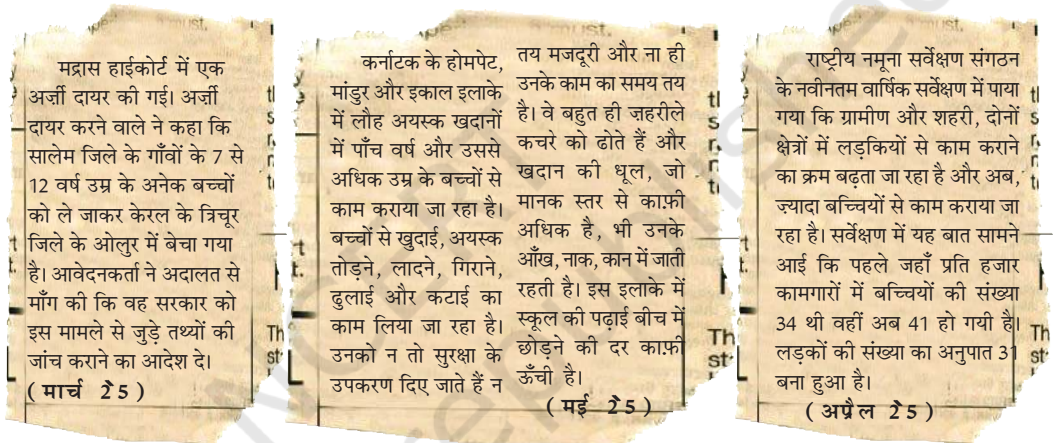 मद्रास हाईकोर्ट में एक
अर्ज़ी दायर की गई। अर्ज़ी
दायर करने वाले ने कहा कि
सालेम जिले के गाँवों के 7 से
12 वर्ष उम्र के अनेक बच्चों
को ले जाकर केरल के त्रिचूर
जिले के ओलुर में बेचा गया
है। आवेदनकर्ता ने अदालत से
माँग की कि वह सरकार को
इस मामले से जुड़े तथ्यों की
जांच कराने का आदेश दे।
(मार्च 25)
कर्नाटक के होमपेट,
मांडुर और इकाल इलाके
में लौह अयस्क खदानों
में पाँच वर्ष और उससे
अधिक उम्र के बच्चों से
काम कराया जा रहा है।
बच्चों से खुदाई, अयस्क
तोड़ने, लादने, गिराने,
ढुलाई और कटाई का
काम लिया जा रहा है।
उनको न तो सुरक्षा के
उपकरण दिए जाते हैं न
तय मजदूरी और ना ही
उनके काम का समय तय
है। वे बहुत ही जहरीले
कचरे को ढोते हैं और
खदान की धूल, जो
मानक स्तर से काफ़ी
अधिक है, भी उनके
आँख, नाक, कान में जाती
रहती है। इस इलाके में
स्कूल की पढ़ाई बीच में
छोड़ने की दर काफ़ी
ऊँची है।
(मई 25)
राष्ट्रीय नमूना सर्वेक्षण संगठन
के नवीनतम वार्षिक सर्वेक्षण में पाया
गया कि ग्रामीण और शहरी, दोनों
क्षेत्रों में लड़कियों से काम कराने
का क्रम बढ़ता जा रहा है और अब,
ज्यादा बच्चियों से काम कराया जा
रहा है। सर्वेक्षण में यह बात सामने
आई कि पहले जहाँ प्रति हजार
कामगारों में बच्चियों की संख्या
34 थी वहीं अब 41 हो गयी है।
लड़कों की संख्या का अनुपात 31
बना हुआ है।
(अप्रैल 25)